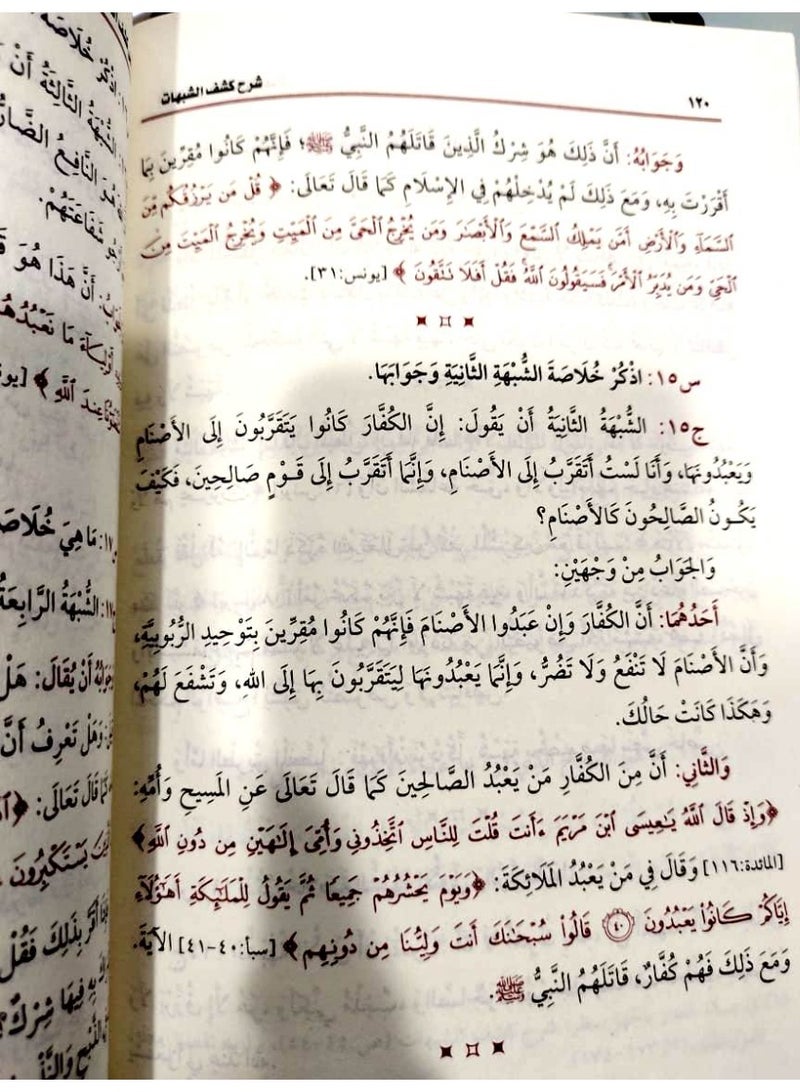 ١٢٠ شرح كشف الشبهات
وَجَوَابُهُ: أَنَّ ذَلِكَ هُوَ شِرْكُ الَّذِينَ قَاتَلَهُمُ النَّبِيُّ ﷺ؛ فَإِنَّهُمْ كَانُوا مُقِرِّينَ بِمَا
أَقْرَرْتَ بِهِ، وَمَعَ ذَلِكَ لَمْ يُدْخِلْهُمْ فِي الإِسْلَامِ كَمَا قَالَ تَعَالَى: ﴿ قُلْ مَن يَرْزُقُكُم مِّنَ
ٱلسَّمَآءِ وَٱلْأَرْضِ أَمَّن يَمْلِكُ ٱلسَّمْعَ وَٱلْأَبْصَٰرَ وَمَن يُخْرِجُ ٱلْحَىَّ مِنَ ٱلْمَيِّتِ وَيُخْرِجُ ٱلْمَيِّتَ مِنَ
ٱلْحَىِّ وَمَن يُدَبِّرُ ٱلْأَمْرَ ۚ فَسَيَقُولُونَ ٱللَّهُ ۚ فَقُلْ أَفَلَا تَتَّقُونَ ﴾ [يونس:٣١].
س١٥: اذْكُرْ خُلَاصَةَ الشُّبْهَةِ الثَّانِيَةِ وَجَوَابَهَا.
ج١٥: الشُّبْهَةُ الثَّانِيَةُ أَنْ يَقُولَ: إِنَّ الكُفَّارَ كَانُوا يَتَقَرَّبُونَ إِلَى الأَصْنَامِ
وَيَعْبُدُونَهَا، وَأَنَا لَسْتُ أَتَقَرَّبُ إِلَى الأَصْنَامِ، وَإِنَّمَا أَتَقَرَّبُ إِلَى قَوْمٍ صَالِحِينَ، فَكَيْفَ
يَكُونُ الصَّالِحُونَ كَالأَصْنَامِ؟
وَالجَوَابُ مِنْ وَجْهَيْنِ:
أَحَدُهُمَا: أَنَّ الكُفَّارَ وَإِنْ عَبَدُوا الأَصْنَامَ فَإِنَّهُمْ كَانُوا مُقِرِّينَ بِتَوْحِيدِ الرُّبُوبِيَّةِ،
وَأَنَّ الأَصْنَامَ لَا تَنْفَعُ وَلَا تَضُرُّ، وَإِنَّمَا يَعْبُدُونَهَا لِيَتَقَرَّبُونَ بِهَا إِلَى اللهِ، وَتَشْفَعَ لَهُمْ،
وَهَكَذَا كَانَتْ حَالُكَ.
وَالثَّانِي: أَنَّ مِنَ الكُفَّارِ مَنْ يَعْبُدُ الصَّالِحِينَ كَمَا قَالَ تَعَالَى عَنِ المَسِيحِ وَأُمِّهِ:
﴿وَإِذْ قَالَ ٱللَّهُ يَٰعِيسَى ٱبْنَ مَرْيَمَ ءَأَنتَ قُلْتَ لِلنَّاسِ ٱتَّخِذُونِى وَأُمِّىَ إِلَٰهَيْنِ مِن دُونِ ٱللَّهِ﴾
[المائدة:١١٦] وَقَالَ فِي مَنْ يَعْبُدُ المَلَائِكَةَ: ﴿وَيَوْمَ يَحْشُرُهُمْ جَمِيعًا ثُمَّ يَقُولُ لِلْمَلَٰٓئِكَةِ أَهَٰٓؤُلَآءِ
إِيَّاكُمْ كَانُوا۟ يَعْبُدُونَ ٤٠ قَالُوا۟ سُبْحَٰنَكَ أَنتَ وَلِيُّنَا مِن دُونِهِم﴾ [سبأ:٤٠-٤١] الآيَةَ.
وَمَعَ ذَلِكَ فَهُمْ كُفَّارٌ، قَاتَلَهُمُ النَّبِيُّ ﷺ.
اذْكُرْ
الشُّبْهَةُ الثَّالِثَةُ أَنْ
هُوَ النَّافِعُ
شَفَاعَتَهُمْ.
أَنَّ هَذَا هُوَ
مَا نَعْبُدُهُمْ
ٱللَّهِ ﴾
مَا هِيَ
الشُّبْهَةُ الرَّابِعَةُ
أَنْ يُقَالَ: هَلْ
وَهَلْ تَعْرِفُ أَنَّ
قَالَ تَعَالَى: ﴿
يَسْتَكْبِرُونَ
بِذَلِكَ فَقُلْ
فِيهَا شِرْكٌ